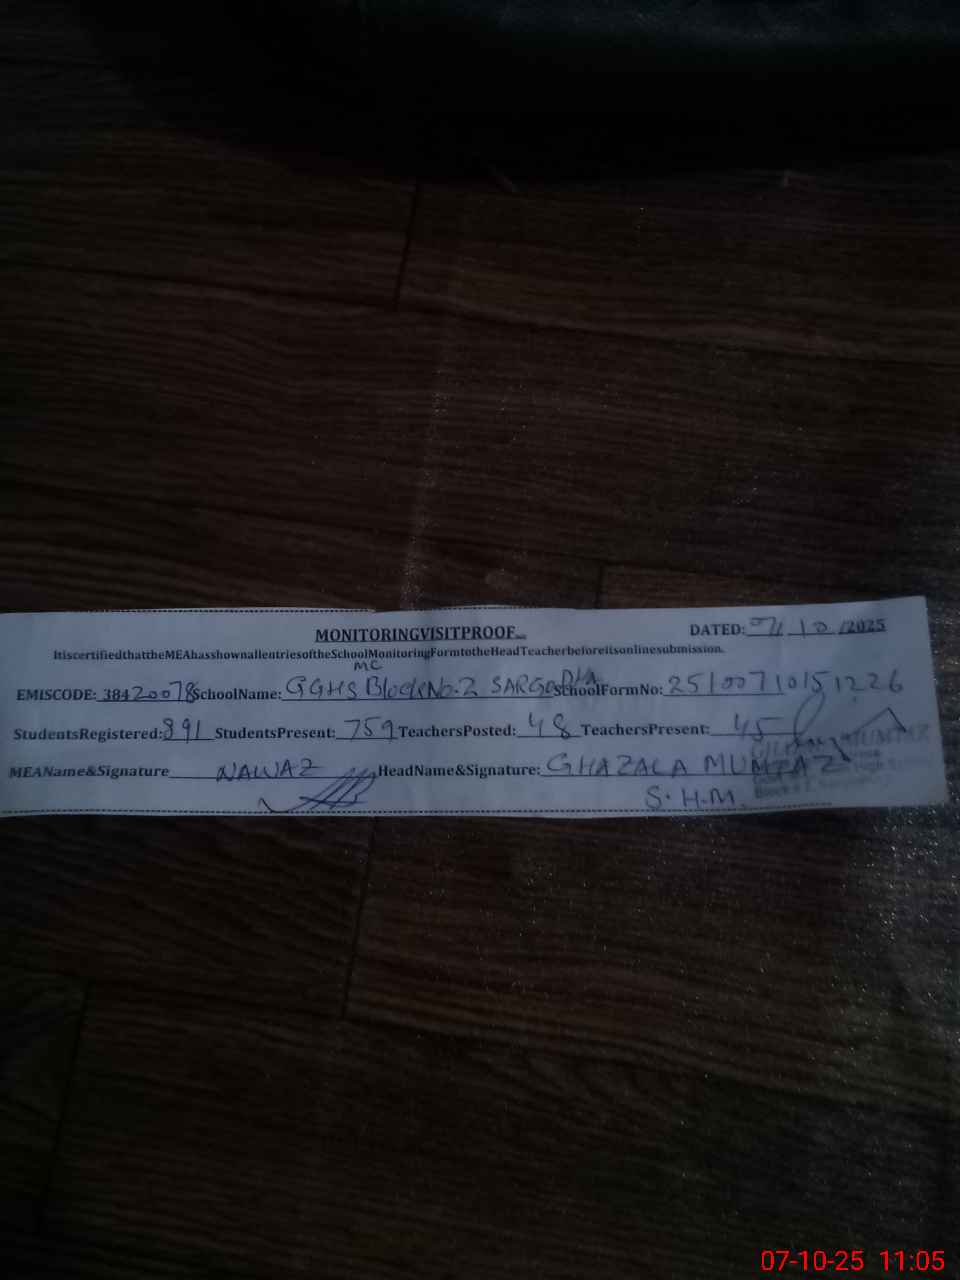 MONITORINGVISITPROOF
DATED: 07/10/2025
ItiscertifiedthattheMEAhasshownallentriesoftheSchoolMonitoringFormtotheHeadTeacherbeforeitsonlinesubmission.
MC
EMISCODE: 38420078 SchoolName: GGHS Block No. 2 SARGODHA SchoolFormNo: 25100710151226
StudentsRegistered: 891 StudentsPresent: 759 TeachersPosted: 48 TeachersPresent: 45
MEAName&Signature NAWAZ HeadName&Signature: GHAZALA MUMTAZ
S.H.M.
MUMTAZ
High
07-10-25 11:05